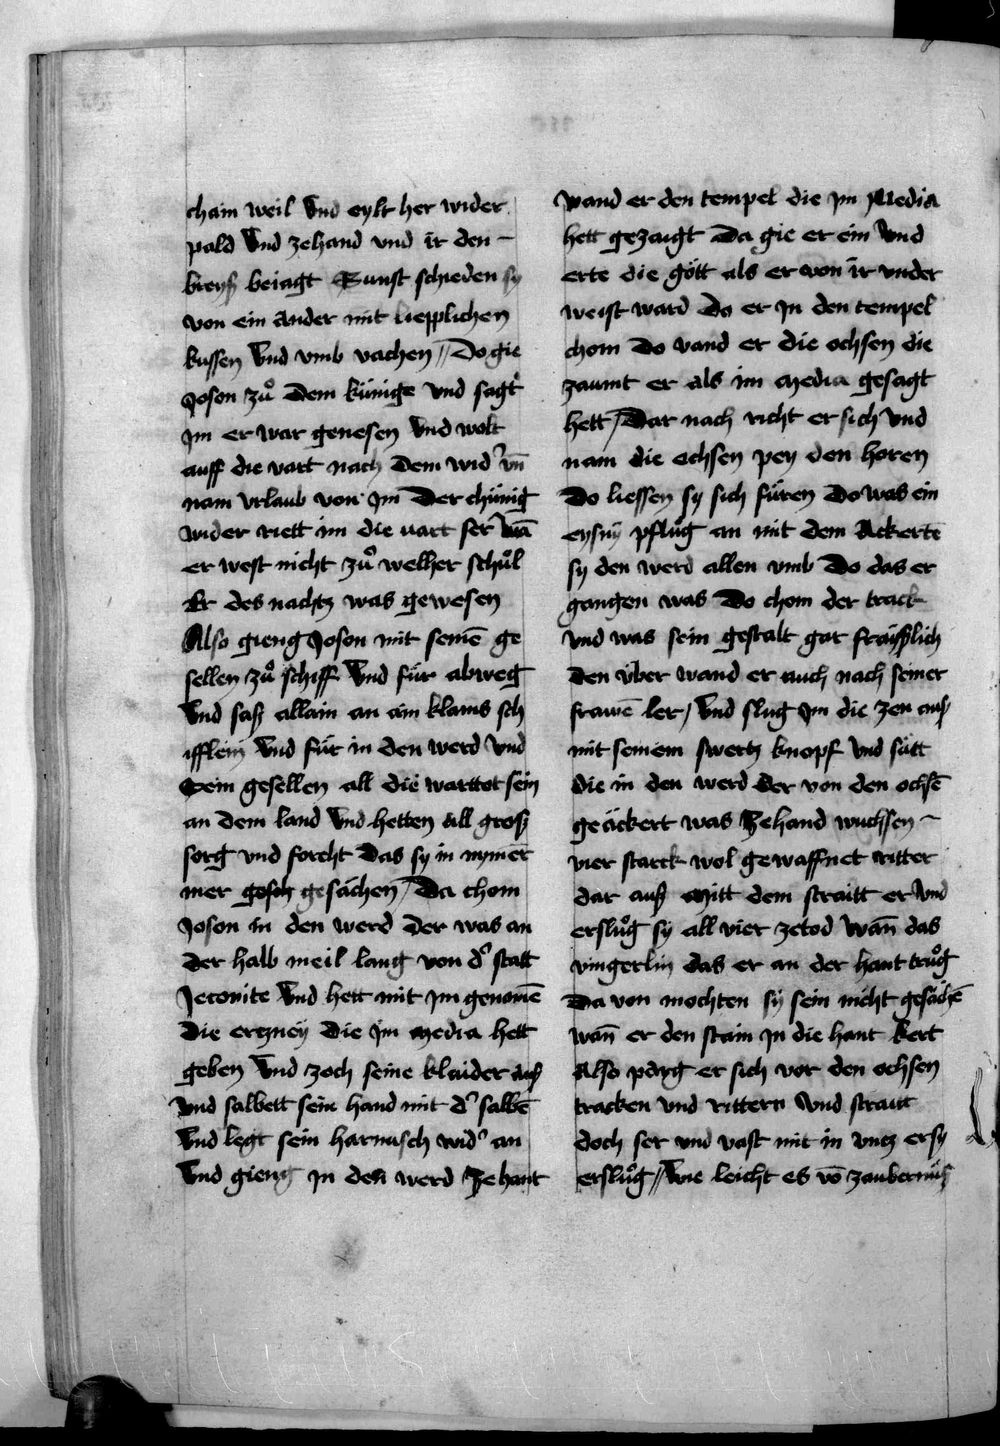 chain weil Vnd eylt her wider
pald Vnd zehand vnd ir den
breyß beiagt Sunst schieden sy
von ein ander mit liepplichen
kussen Vnd vmb vachen // Do gie
Joson zuͦ dem künige vnd sagt
Jm er war genesen Vnd wolt
auff die vart nach dem wid' vn̄
nam vrlaub von Jm Der chünig
wider riett im die vart ser wā
er west nicht zuͦ welher schuͦl
Er des nachtz was gewesen
Also gieng Joson mit semē ge
sellen zuͦ schiff Vnd fuͤr abweg
Vnd saß allain an ain klains sch
ifflein Vnd fuͤr in den werd Vnd
Sein gesellen all die warttot sein
an dem land Vnd hetten all groß
sorg vnd forcht das sy in nymēr
mer gesch gesächen / Da chom
Joson in den werd der was an
der halb meil lang von d' statt
Jeconite Vnd hett mit Jm genomē
die erczney die Jm Media hett
geben Vnd zoch seine klaider auß
Vnd salbett sein hand mit d' salbē
Vnd legt sein harnasch wid' an
Vnd gieng Jn den werd Zehant
wand er den tempel die Jm Media
hett gezaigt Da gie er ein Vnd
erte die gött als er von ir vnder
weist ward Do er Jn den tempel
chom Do vand er die ochsen die
zaumt er als im Media gesagt
hett / Dar nach richt er sich Vnd
nam die ochsen pey den horen
Do liessen sy sich füren Do was ein
eysnӱ pfluͦg an mit dem Ackertē
sy den werd allen vmb Do das er
gangen was Do chom der track
vnd was sein gestalt gar fräißlich
den vber wand er auch nach seiner
frawē ler / Vnd slug Jm die zen auß
mit seinem swertz knopf Vnd sätt
die in den werd der von den ochsē
geäckert was Zehand wuchsen
vier starck wol gewaffnet ritter
dar auß Mitt dem straitt er Vnd
ersluͦg sy all vier zetod Wan̄ das
vingerlin das er an der hant truͦg
Da von mochten sy sein nicht gesächē
wan̄ er den stain Jn die hant kert
Also parg er sich vor den ochsen
tracken vnd rittern Vnd straitt
doch ser vnd vast mit in vncz er sy
ersluͦg // Wie leicht es vō zaubernüß